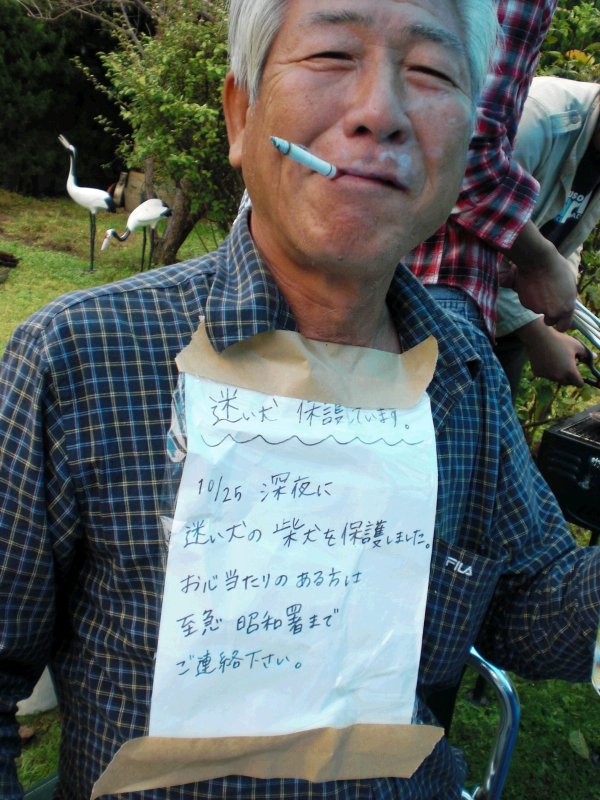 迷い犬 保護しています。
10/25 深夜に
迷い犬の 柴犬を保護しました。
お心当たりのある方は
至急 昭和署まで
ご連絡下さい。
FILA